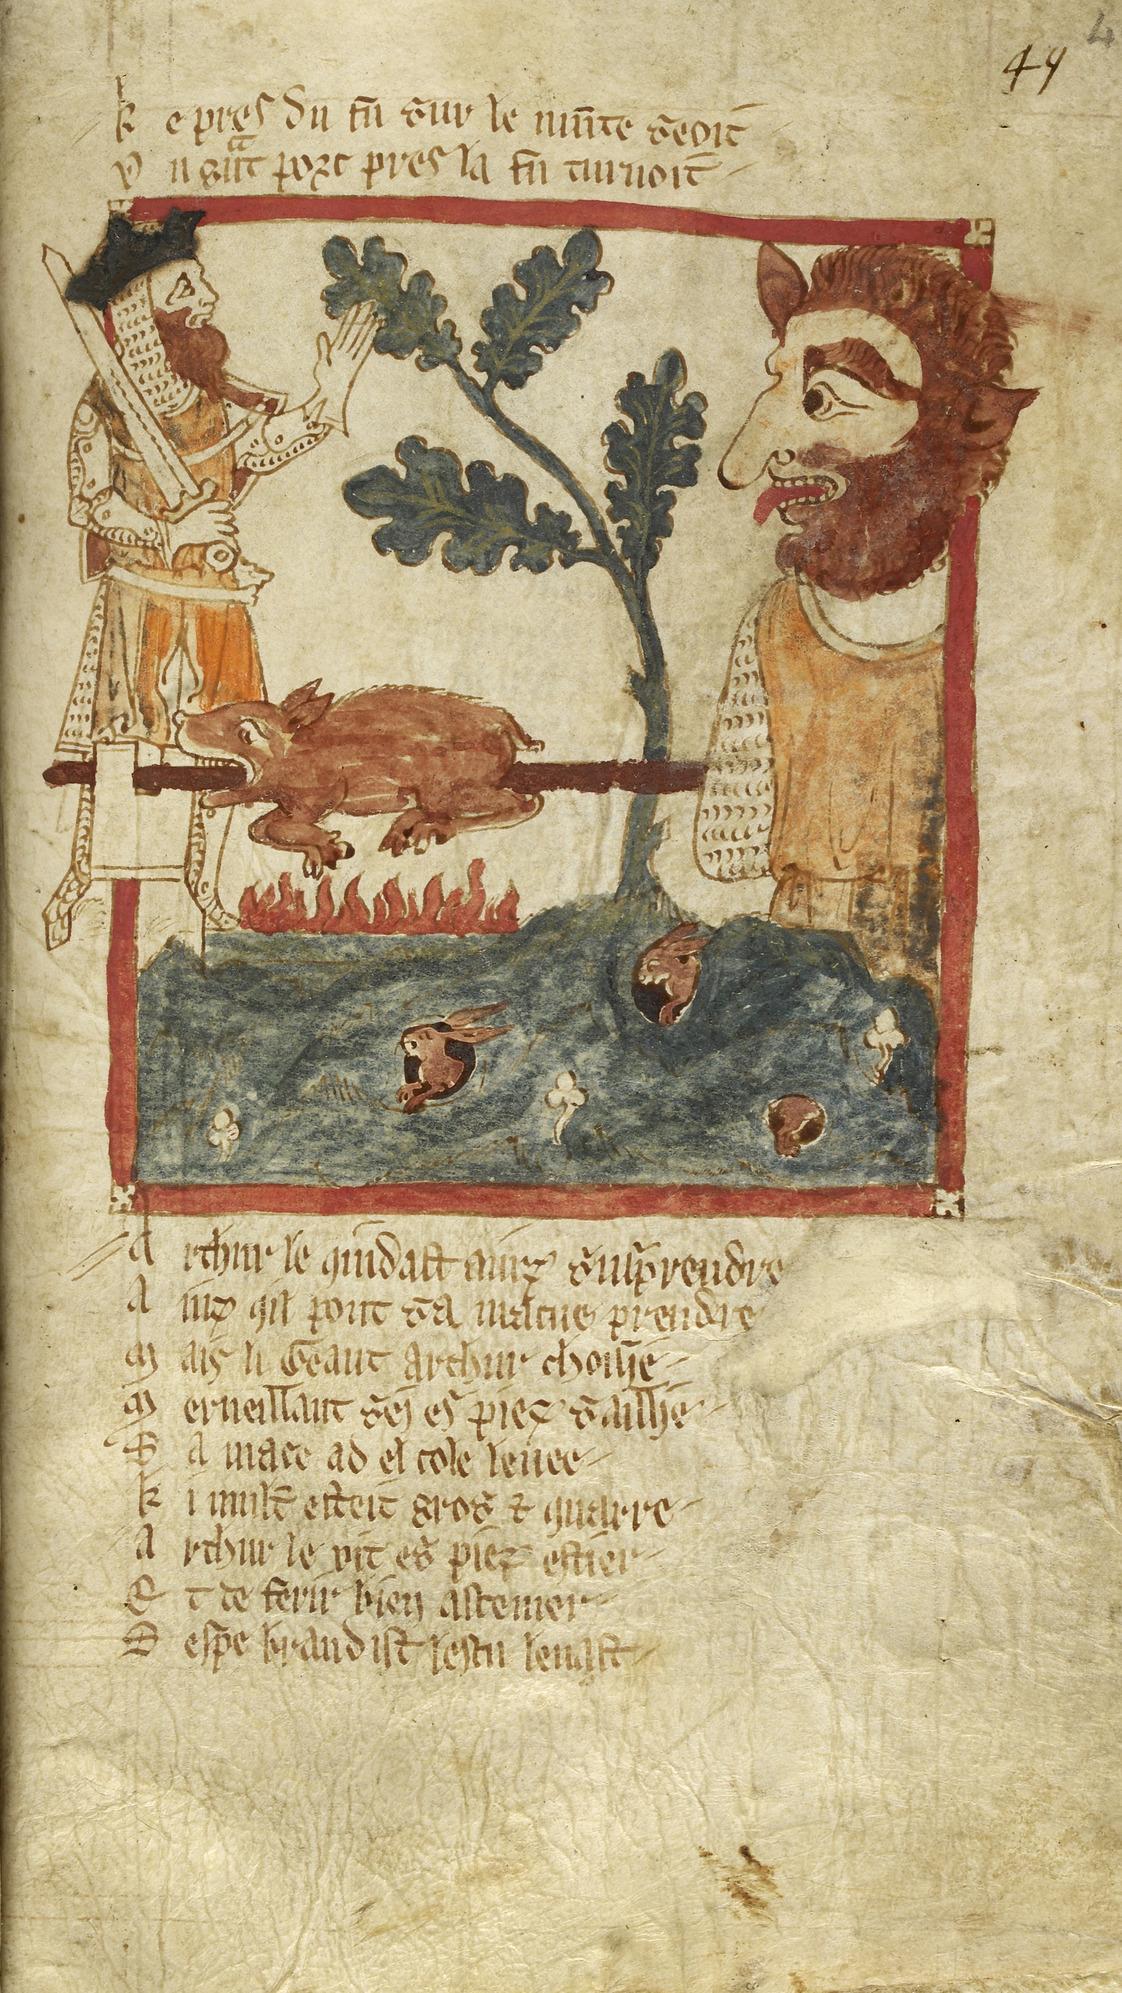 44 4
k e pres du fu sur le munte seoit
U n gnt porc pres la fu turnoit
A rthur le quidast auiz suspendre
A inz qil pout sa macue prendre
M ais li Geant Arthur
M erueillant sei es piez sailli
S a mace ad el cole leuee
k i mult esteit gros & quarre
A rthur le vit es piez ester
E t de ferir bien
S espe brandist lescu leuast